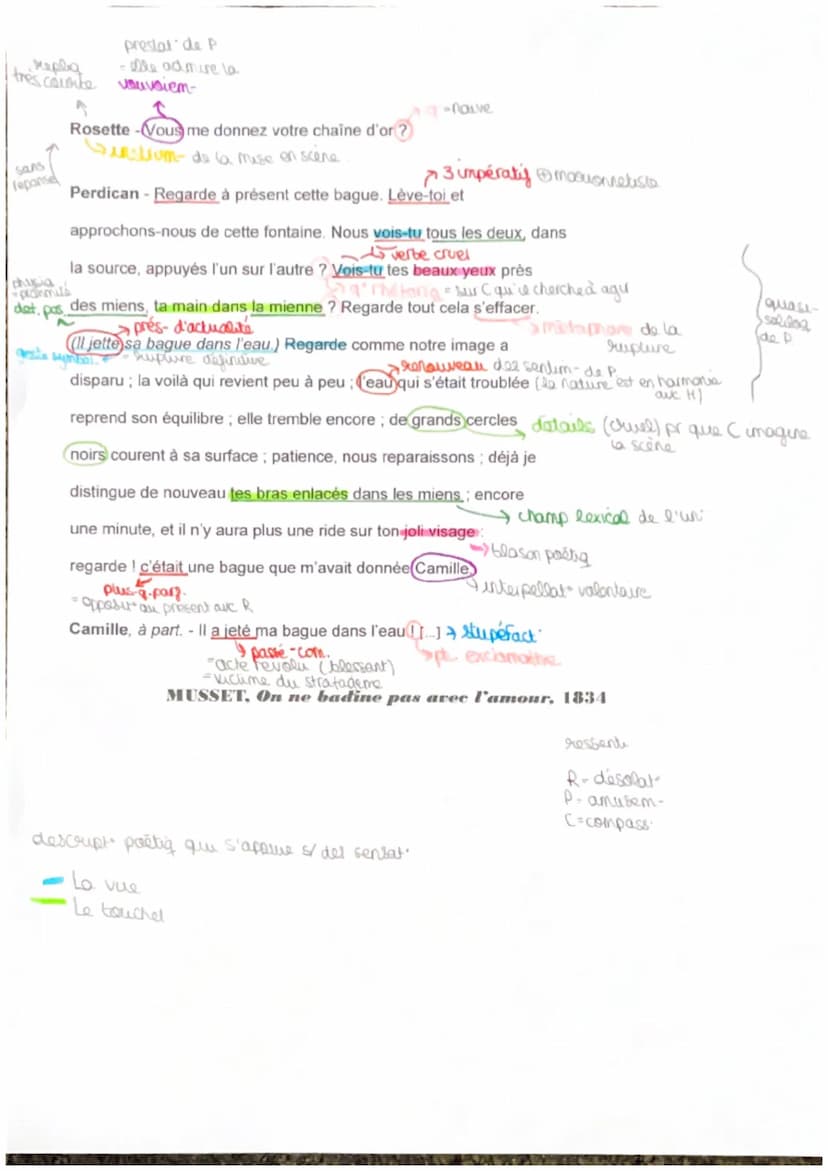 prestat° de P
répliq - elle admire la
très courte vouvoiem-
? = naïve
Rosette - Vous me donnez votre chaîne d'or ?
sans de la mise en scène
reponse 3 impératif ⊕ marionnetiste
Perdican - Regarde à présent cette bague. Lève-toi et
approchons-nous de cette fontaine. Nous vois-tu tous les deux, dans
verbe cruel
la source, appuyés l'un sur l'autre ? Vois-tu tes beaux yeux près
physiq
= proximité q° rhétoriq = sur C qu'il cherche à agir
det. pos. des miens, ta main dans la mienne ? Regarde tout cela s'effacer.
prés- d'actualité métaphore de la
rupture
(Il jette sa bague dans l'eau.) Regarde comme notre image a
geste symbol. = Rupture définitive
renouveau des sentim- de P
disparu ; la voilà qui revient peu à peu ; l'eau qui s'était troublée (la nature est en harmonie
avec H)
reprend son équilibre ; elle tremble encore ; de grands cercles
détails (cruel) pr que C imagine
la scène
noirs courent à sa surface ; patience, nous reparaissons ; déjà je
distingue de nouveau tes bras enlacés dans les miens ; encore
champ lexical de l'un°
une minute, et il n'y aura plus une ride sur ton joli visage :
blason poétiq
regarde ! c'était une bague que m'avait donnée Camille.
interpellat° volontaire
plus-q-parf.
= opposit° au présent avc R
quasi-
soliloq
de P
Camille, à part. - Il a jeté ma bague dans l'eau ! [...] stupéfact°
passé-com. pt exclamative
= acte révolu (blessant)
= victime du stratagème
MUSSET, On ne badine pas avec l'amour, 1834
ressenti
R = désolat°
P = amusem-
C = compass°
descript° poétiq qui s'appuie s/ des sensat°
La vue
Le toucher